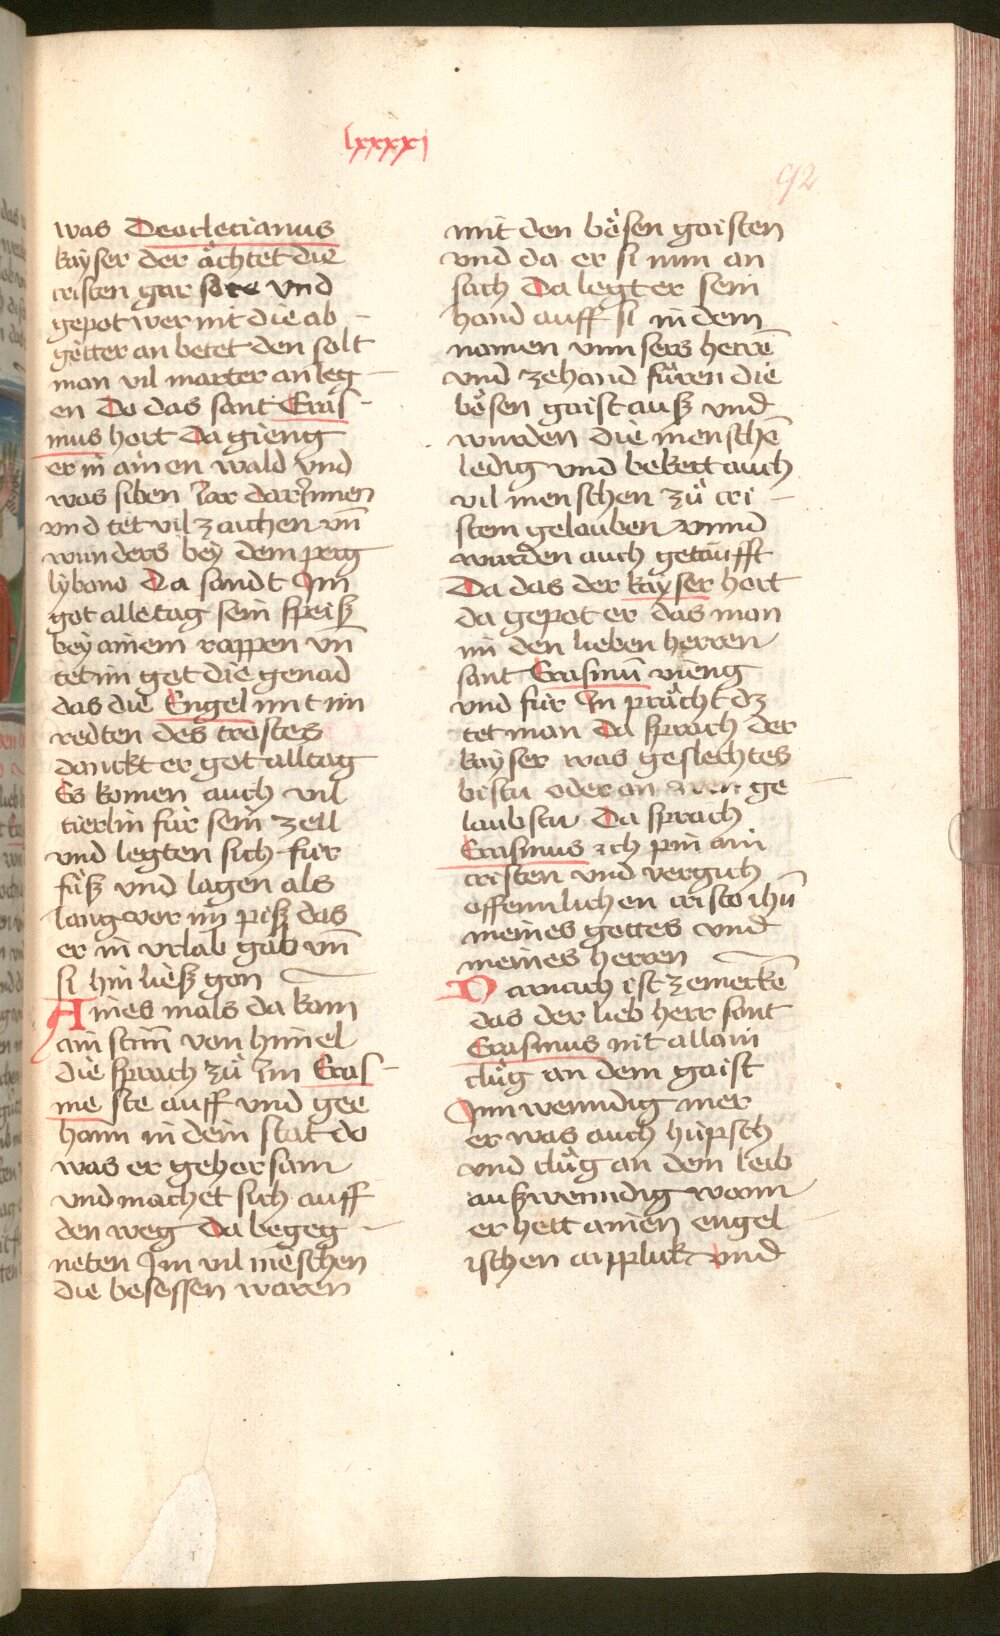 lxxxxj
92
was Deocletianus
kayser der ächtet die
cristen gar sere vnd
gepot wer nit die ab
götter an betet den solt
man vil marter an leg
en Do das sant Eras
mus hort Da gieng
er in ainen wald vnd
was siben Jar darJnnen
vnd tet vil zaichen vn̄
wunders bey dem perg
lybano Da sandt Jm
got alle tag sein speiß
bey ainem rappen vn̄
tet im got die genad
das die Engel mit im
redten des trostes
danckt er got alltag
Es komen auch vil
tierlin für sein zell
vnd legten sich für
füß vnd lagen als
lang vor im piß das
er in vrlab gab vn̄
si hin ließ gon
Aines mals da kam
ain stim̄ von himel
die sprach zu̓ Jm Eras
me ste auff vnd gee
haim in dein stat do
was er gehorsam
vnd machet sich auff
den weg Da begeg
neten Jm vil mēschen
die besessen waren
mit den bösen gaisten
vnd da er si nun an
sach Da legt er sein
hand auff si in dem
namen vnnsers herrē
vnd zehand füren die
bösen gaist auß vnd
wurden die menschē
ledig vnd bekert auch
vil menschen zu̓ cri
stem gelauben vnnd
wurden auch getaufft
Da das der kayser hort
da gepot er das man
im den lieben herren
sant Erasmū vieng
vnd für Jn prächt dz
tet man Da sprach der
kayser was geslechtes
bistu oder an wen ge
laubstu Da sprach
Erasmus ich pin ain
cristen vnd vergich
offennlichen cristo ihū
meines gottes vnd
meines herren
Darnach ist zemerckē
das der lieb herr sant
Erasmus nit allain
clu̓g an dem gaist
Jnnwenndig mer
er was auch hüpsch
vnd clu̓g an dem leib
außwenndig wann
er hett ainen engel
ischen anplick vnd